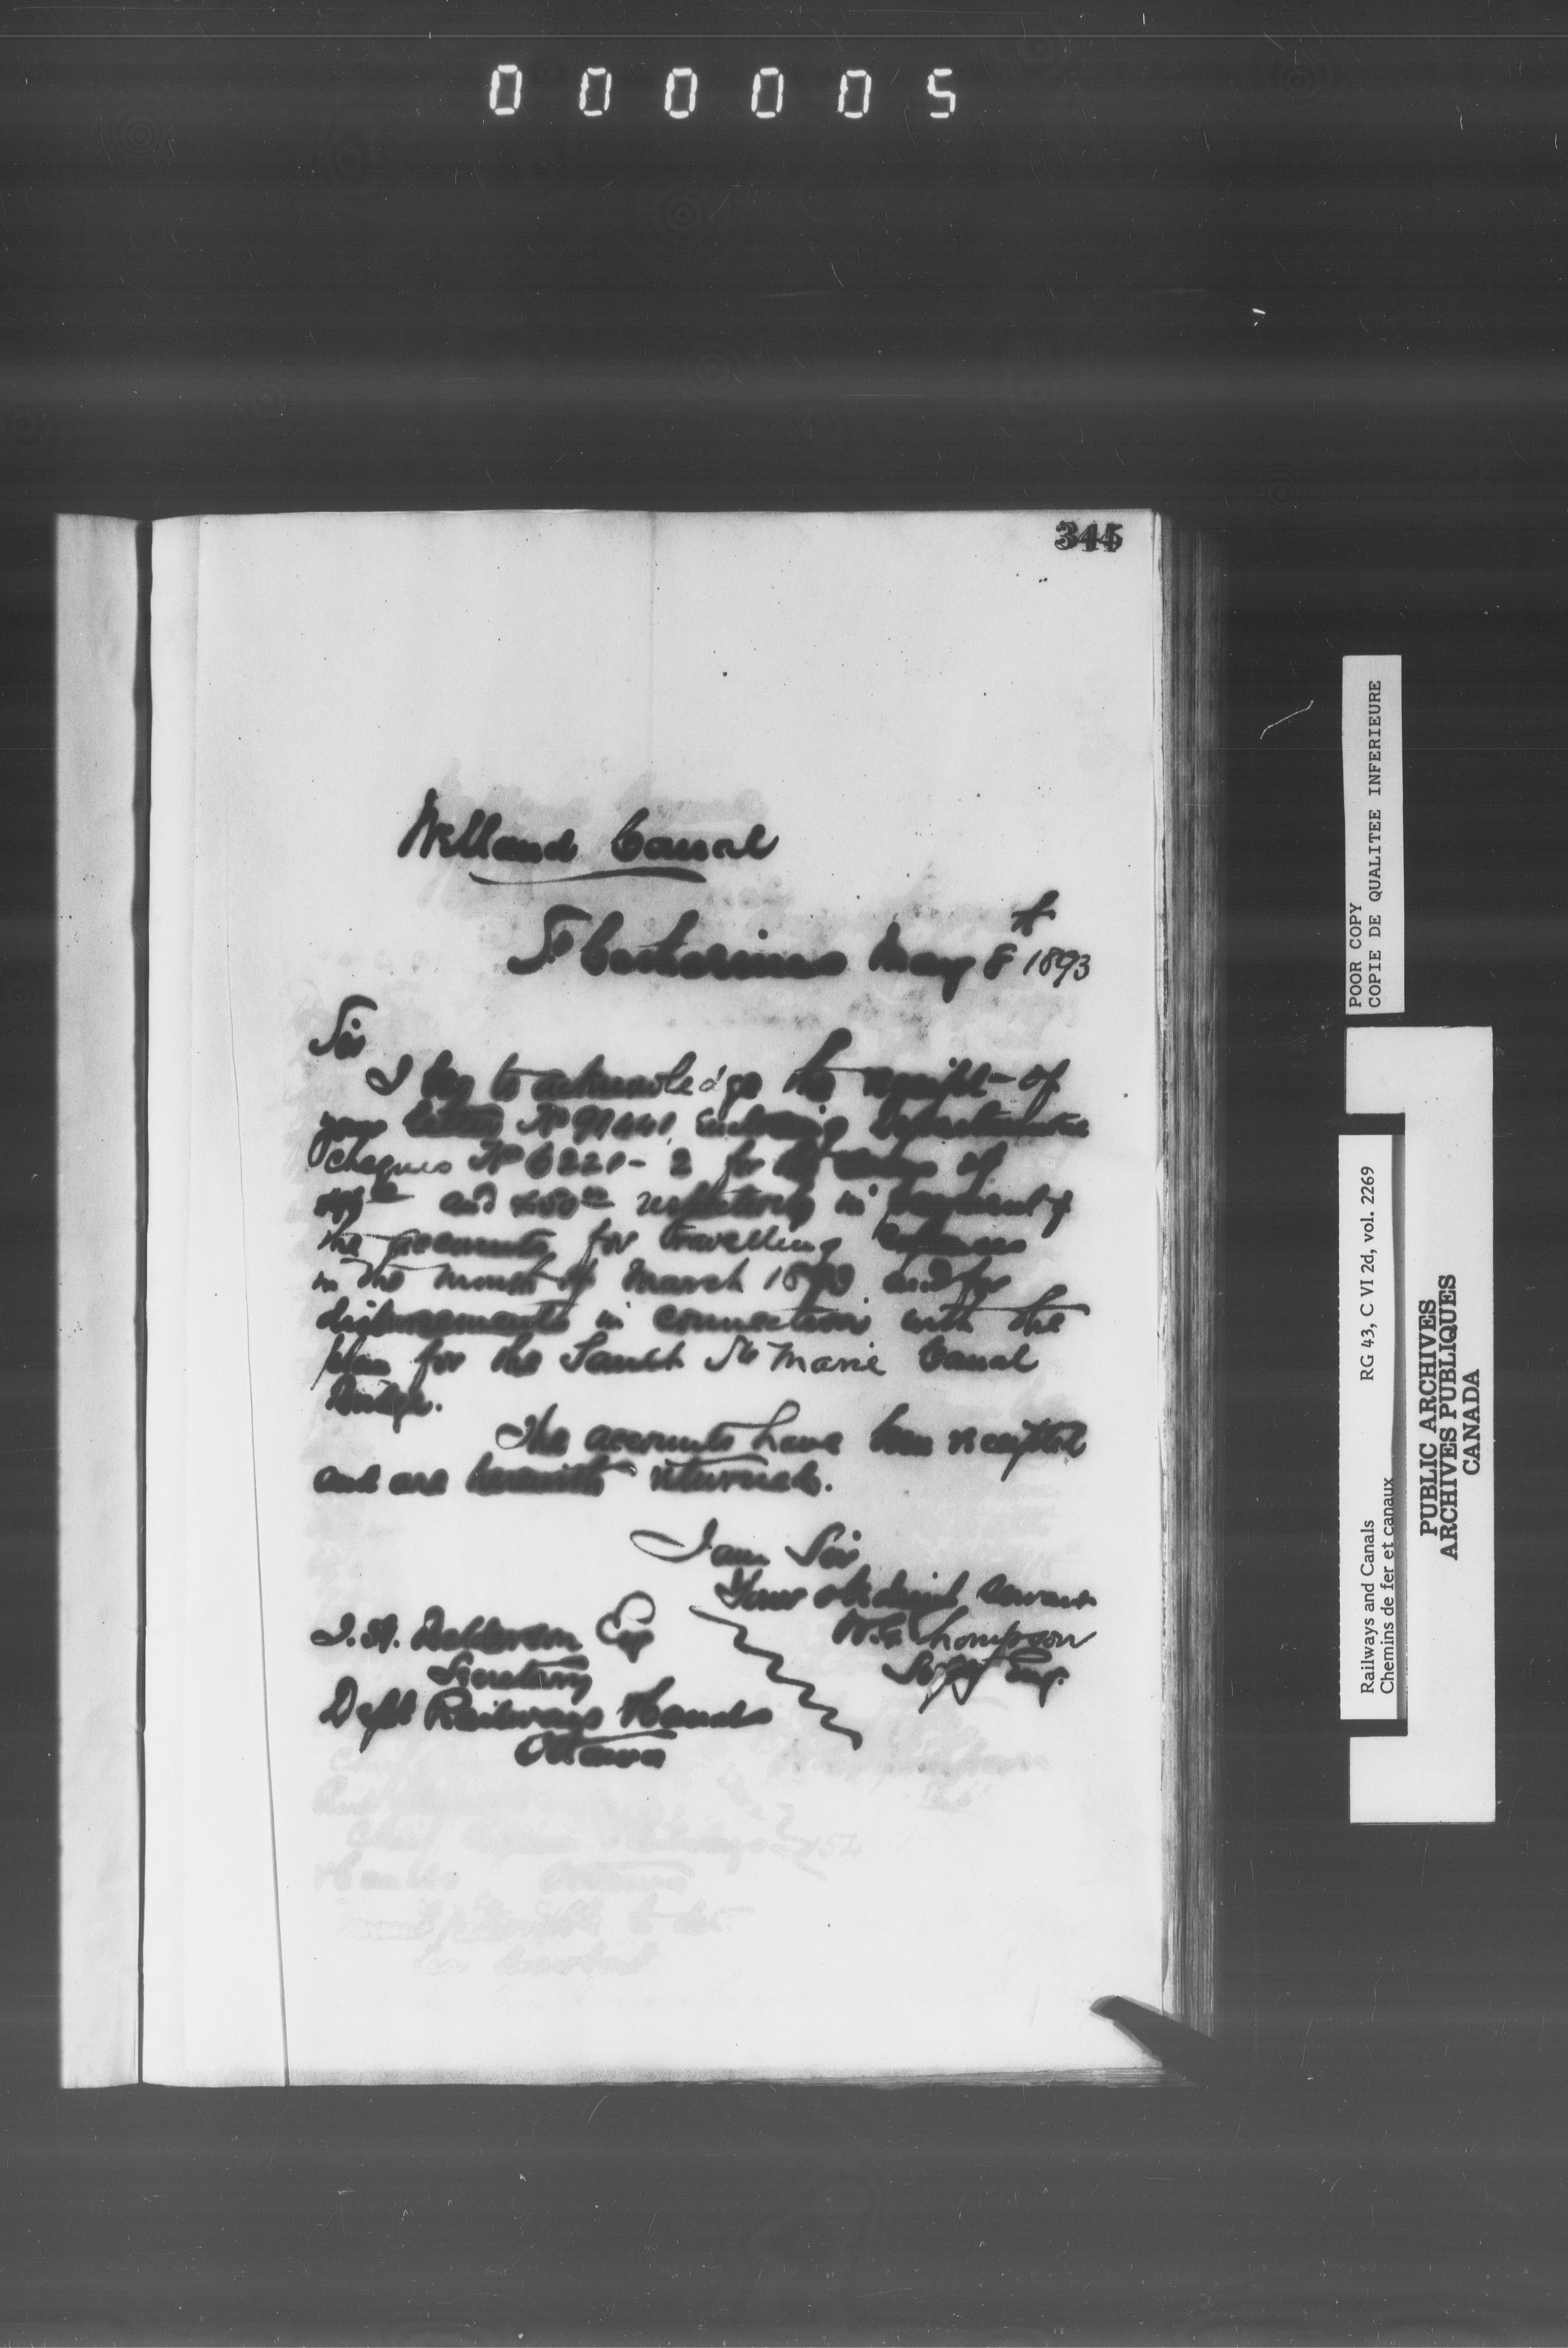 000005
345
Welland Canal
St Catharines May 8th 1893
Sir
I beg to acknowledge the receipt of
your letter No 91441 enclosing Departmental
cheques No 6221-2 for the sums of
and respectively in payment of
the accounts for travelling expenses
in the month of March 1893 and for
disbursements in connection with the
plan for the Sault Ste Marie Canal
Bridge.
The accounts have been receipted
and are herewith returned.
I am Sir
Your obedient servant
W. G. Thompson
Supg Eng.
Esq
Secretary
Dept Railways & Canals
Ottawa
POOR COPY
COPIE DE QUALITEE INFERIEURE
Railways and Canals RG 43, C VI 2d, vol. 2269
Chemins de fer et canaux
PUBLIC ARCHIVES
ARCHIVES PUBLIQUES
CANADA